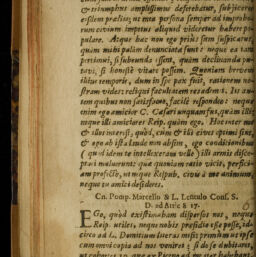 & triumphus amplissimus deferebatur, subijcere
esdem prædicet, ut mea persona semper ad improbo-
rum civium impetus aliquid videretur habere po-
pulare. Atque hæc non ego prius sum suspicatus,
quàm mihi palàm denunciata sunt: neque ea tam
pertimui, si subeunda essent, quàm declinanda pu-
tavi, si honestè vitare possem. Quoniam brevem
illius temporis, dum in spe pax fuit, rationem no-
stram vides: reliqui facultatem res ademit. Iis au-
tem quibus non satisfacio, facilè respondeo: neque
enim ego amicior C. Cæsari unquam fui, quàm illi:
neque illi amiciores Reip. quàm ego. Hoc inter me
& illos interest, quòd, cùm & illi cives optimi sint,
& ego ab ista laude non absim, ego conditionibus
(quod idem te intellexeram velle) illi armis discep-
tari maluerunt: quæ quoniam ratio vicit, perfici-
am profectò, ut neque Reipub. civis à me animum,
neque tu amici desideres.
Cn. Pomp. Marcello & L. Lentulo Conss. S.
D. ad Attic. 8 17.
EGo, quòd existimabam dispersos nos, neque
Reip. utiles, neque nobis præsidio esse posse,
circo ad L. Domitium literas misi primùm ut ipse
cum omni copia ad nos veniret: si de se dubitaret,